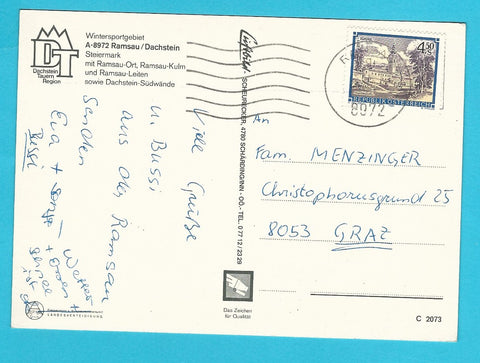 DT
Dachstein
Tauern
Region
Wintersportgebiet
A-8972 Ramsau/Dachstein
Steiermark
mit Ramsau-Ort, Ramsau-Kulm
und Ramsau-Leiten
sowie Dachstein-Südwände
Viele Grüße
u. Bussi
aus der Ramsau
senden
Eva +
Bussi
SCHEURECKER, 4780 SCHÄRDING/INN - OÖ. - TEL. 0 77 12 / 23 29
4.50
REPUBLIK ÖSTERREICH
8972
An
Fam. MENZINGER
Christophorusgrund 25
8053 GRAZ
Das Zeichen
für Qualität
C 2073
LANDESVERTEIDIGUNG